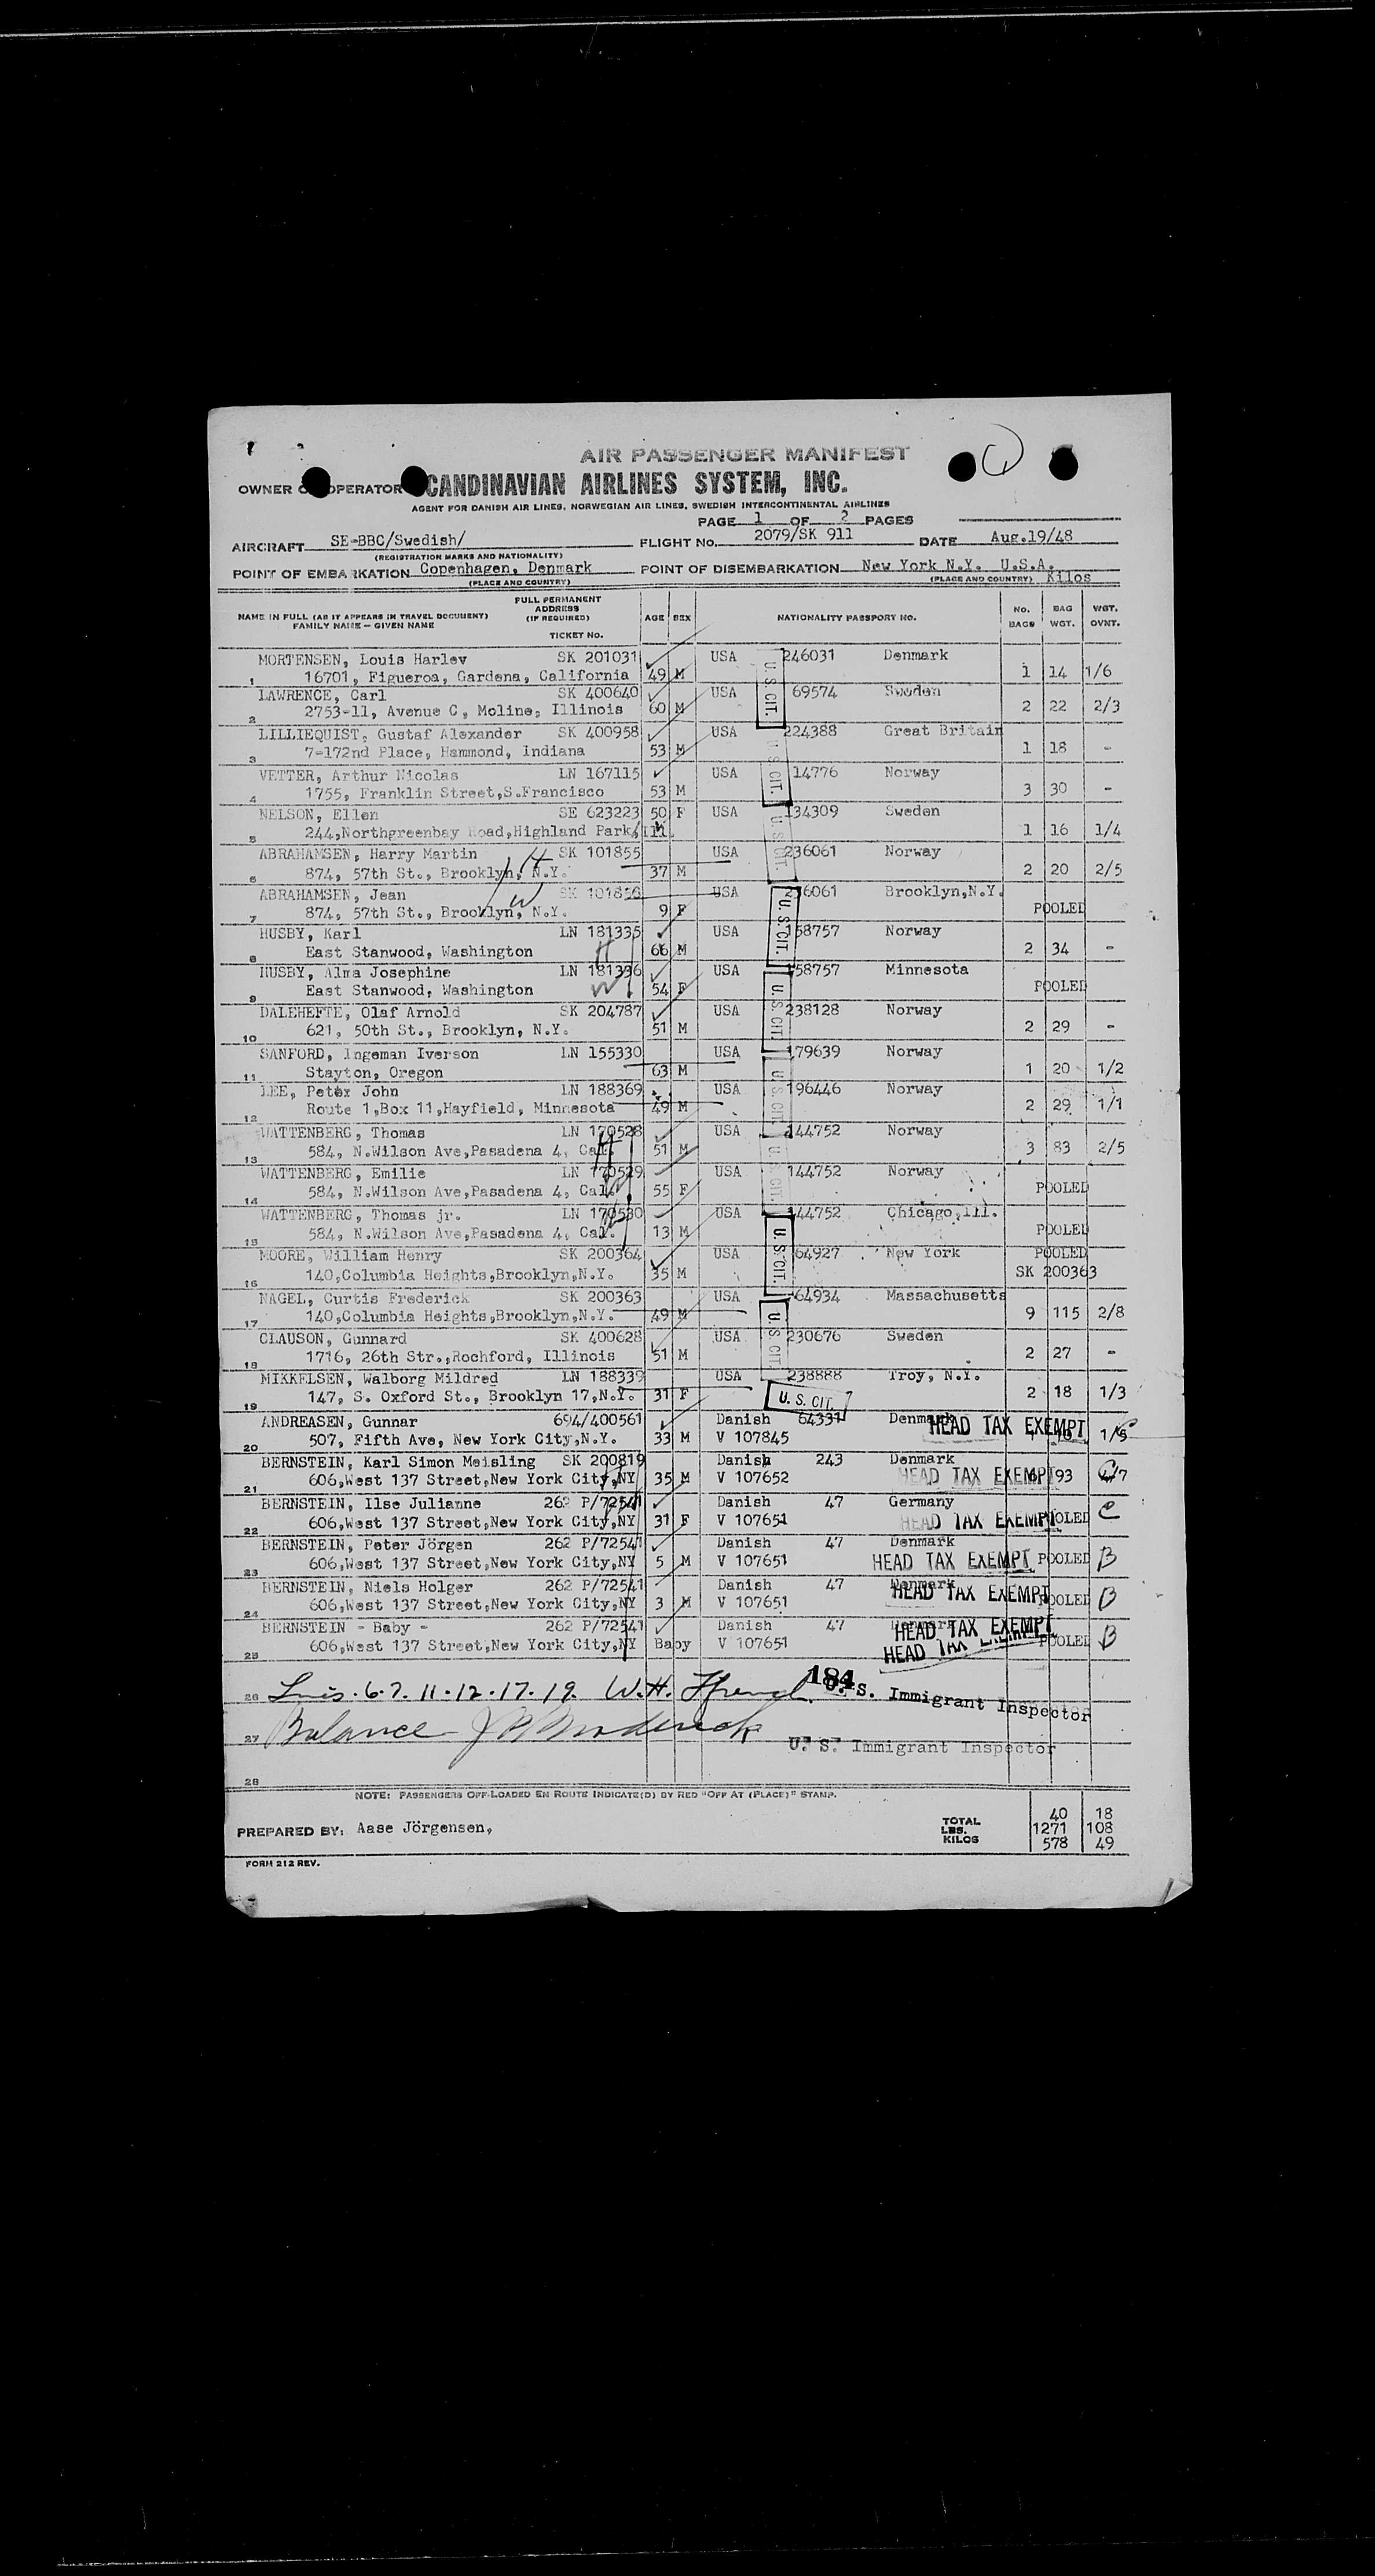 AIR PASSENGER MANIFEST
OWNER OPERATOR CANDINAVIAN AIRLINES SYSTEM, INC.
AGENT FOR DANISH AIR LINES, NORWEGIAN AIR LINES, SWEDISH INTERCONTINENTAL AIRLINES
PAGE 1 OF 2 PAGES
AIRCRAFT SE-BBC/Swedish/ FLIGHT NO. 2079/SK 911 DATE Aug.19/48
(REGISTRATION MARKS AND NATIONALITY)
POINT OF EMBARKATION Copenhagen, Denmark POINT OF DISEMBARKATION New York N.Y. U.S.A.
(PLACE AND COUNTRY) (PLACE AND COUNTRY) Kilos
NAME IN FULL (AS IT APPEARS IN TRAVEL DOCUMENT) FULL PERMANENT ADDRESS (IF REQUIRED) AGE SEX NATIONALITY PASSPORT NO. NO. BAGS BAG WGT. WGT. OVNT.
FAMILY NAME – GIVEN NAME TICKET NO.
MORTENSEN, Louis Harlev SK 201031 USA 246031 Denmark
1 16701, Figueroa, Gardena, California 49 M 1 14 1/6
LAWRENCE, Carl SK 400640 USA 69574 Sweden
2 2753-11, Avenue C, Moline, Illinois 60 M 2 22 2/3
LILLIEQUIST, Gustaf Alexander SK 400958 USA 224388 Great Britain
3 7-172nd Place, Hammond, Indiana 53 M 1 18 -
VETTER, Arthur Nicolas LN 167115 USA 14776 Norway
4 1755, Franklin Street,S.Francisco 53 M 3 30 -
NELSON, Ellen SE 623223 50 F USA 134309 Sweden
5 244,Northgreenbay Road,Highland Park,Ill. 1 16 1/4
ABRAHAMSEN, Harry Martin SK 101855 USA 236061 Norway
6 874, 57th St., Brooklyn, N.Y. 37 M 2 20 2/5
ABRAHAMSEN, Jean SK 101856 USA 236061 Brooklyn,N.Y.
7 874, 57th St., Brooklyn, N.Y. 9 F POOLED
HUSBY, Karl LN 181335 USA 158757 Norway
8 East Stanwood, Washington 66 M 2 34 -
HUSBY, Alma Josephine LN 181336 USA 158757 Minnesota
9 East Stanwood, Washington 54 F POOLED
DALEHEFTE, Olaf Arnold SK 204787 USA 238128 Norway
10 621, 50th St., Brooklyn, N.Y. 51 M 2 29 -
SANFORD, Ingeman Iverson LN 155330 USA 179639 Norway
11 Stayton, Oregon 63 M 1 20 1/2
LEE, Peter John LN 188369 USA 196446 Norway
12 Route 1,Box 11,Hayfield, Minnesota 49 M 2 29 1/1
WATTENBERG, Thomas LN 170528 USA 144752 Norway
13 584, N.Wilson Ave,Pasadena 4, Cal. 51 M 3 83 2/5
WATTENBERG, Emilie LN 170529 USA 144752 Norway
14 584, N.Wilson Ave,Pasadena 4, Cal. 55 F POOLED
WATTENBERG, Thomas jr. LN 170530 USA 144752 Chicago,Ill.
15 584, N.Wilson Ave,Pasadena 4, Cal. 13 M POOLED
MOORE, William Henry SK 200364 USA 64927 New York POOLED
16 140,Columbia Heights,Brooklyn,N.Y. 35 M SK 200363
NAGEL, Curtis Frederick SK 200363 USA 64934 Massachusetts
17 140,Columbia Heights,Brooklyn,N.Y. 49 M 9 115 2/8
CLAUSON, Gunnard SK 400628 USA 230676 Sweden
18 1716, 26th Str.,Rochford, Illinois 51 M 2 27 -
MIKKELSEN, Walborg Mildred LN 188339 USA 238888 Troy, N.Y.
19 147, S. Oxford St., Brooklyn 17,N.Y. 31 F U. S. CIT. 2 18 1/3
ANDREASEN, Gunnar 694/400561 Danish 64331 Denmark HEAD TAX EXEMPT
20 507, Fifth Ave, New York City,N.Y. 33 M V 107845
BERNSTEIN, Karl Simon Meisling SK 200819 Danish 243 Denmark
21 606,West 137 Street,New York City,NY 35 M V 107652 HEAD TAX EXEMPT 93
BERNSTEIN, Ilse Julianne 262 P/72541 Danish 47 Germany
22 606,West 137 Street,New York City,NY 31 F V 107651 HEAD TAX EXEMPT POOLED C
BERNSTEIN, Peter Jörgen 262 P/72541 Danish 47 Denmark
23 606,West 137 Street,New York City,NY 5 M V 107651 HEAD TAX EXEMPT POOLED B
BERNSTEIN, Niels Holger 262 P/72541 Danish 47 Denmark
24 606,West 137 Street,New York City,NY 3 M V 107651 HEAD TAX EXEMPT POOLED B
BERNSTEIN - Baby - 262 P/72541 Danish 47 Denmark HEAD TAX EXEMPT
25 606,West 137 Street,New York City,NY Baby V 107651 HEAD TAX EXEMPT POOLED B
26 Lines. 6. 7. 11. 12. 17. 19. W.H. 184 U. S. Immigrant Inspector
27 Balance U. S. Immigrant Inspector
28
NOTE: PASSENGERS OFF-LOADED EN ROUTE INDICATE(D) BY RED "OFF AT (PLACE)" STAMP.
TOTAL 40 18
PREPARED BY: Aase Jörgensen, LBS. 1271 108
KILOS 578 49
FORM 212 REV.